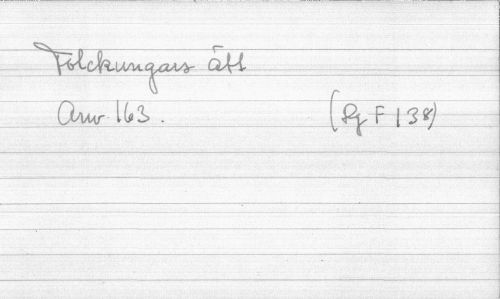 Folckungars ätt
Arw. 163. (Sg F 138)